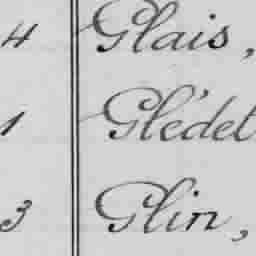 4 Glais,
1 Glédet
3 Glin,